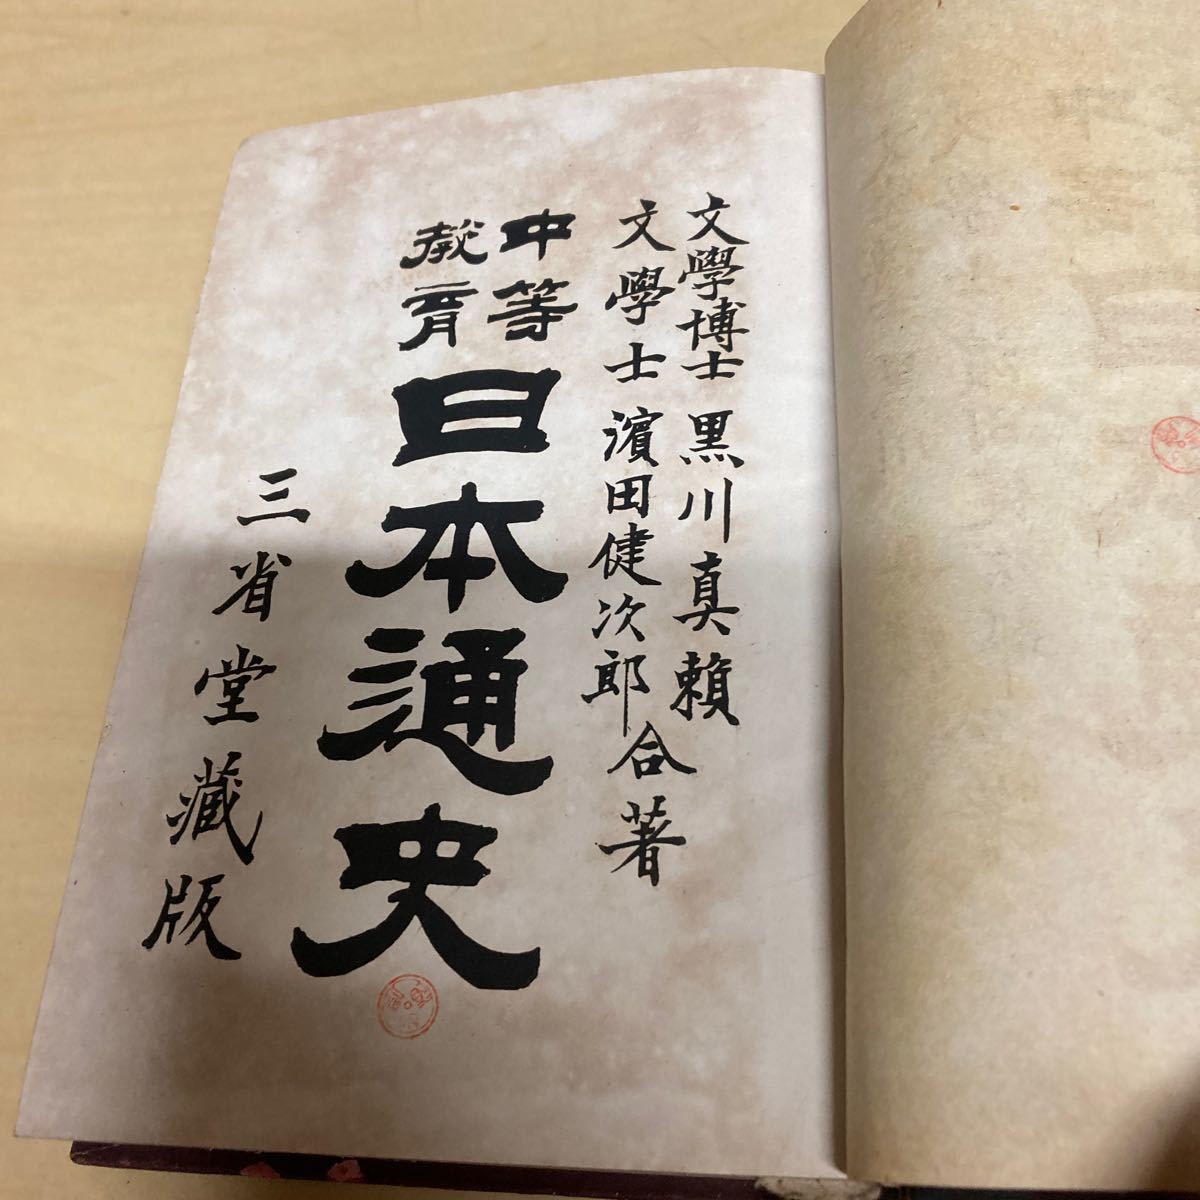 文學博士 黒川真頼
文學士 濱田健次郎 合著
中等
教育
日本通史
三省堂藏版